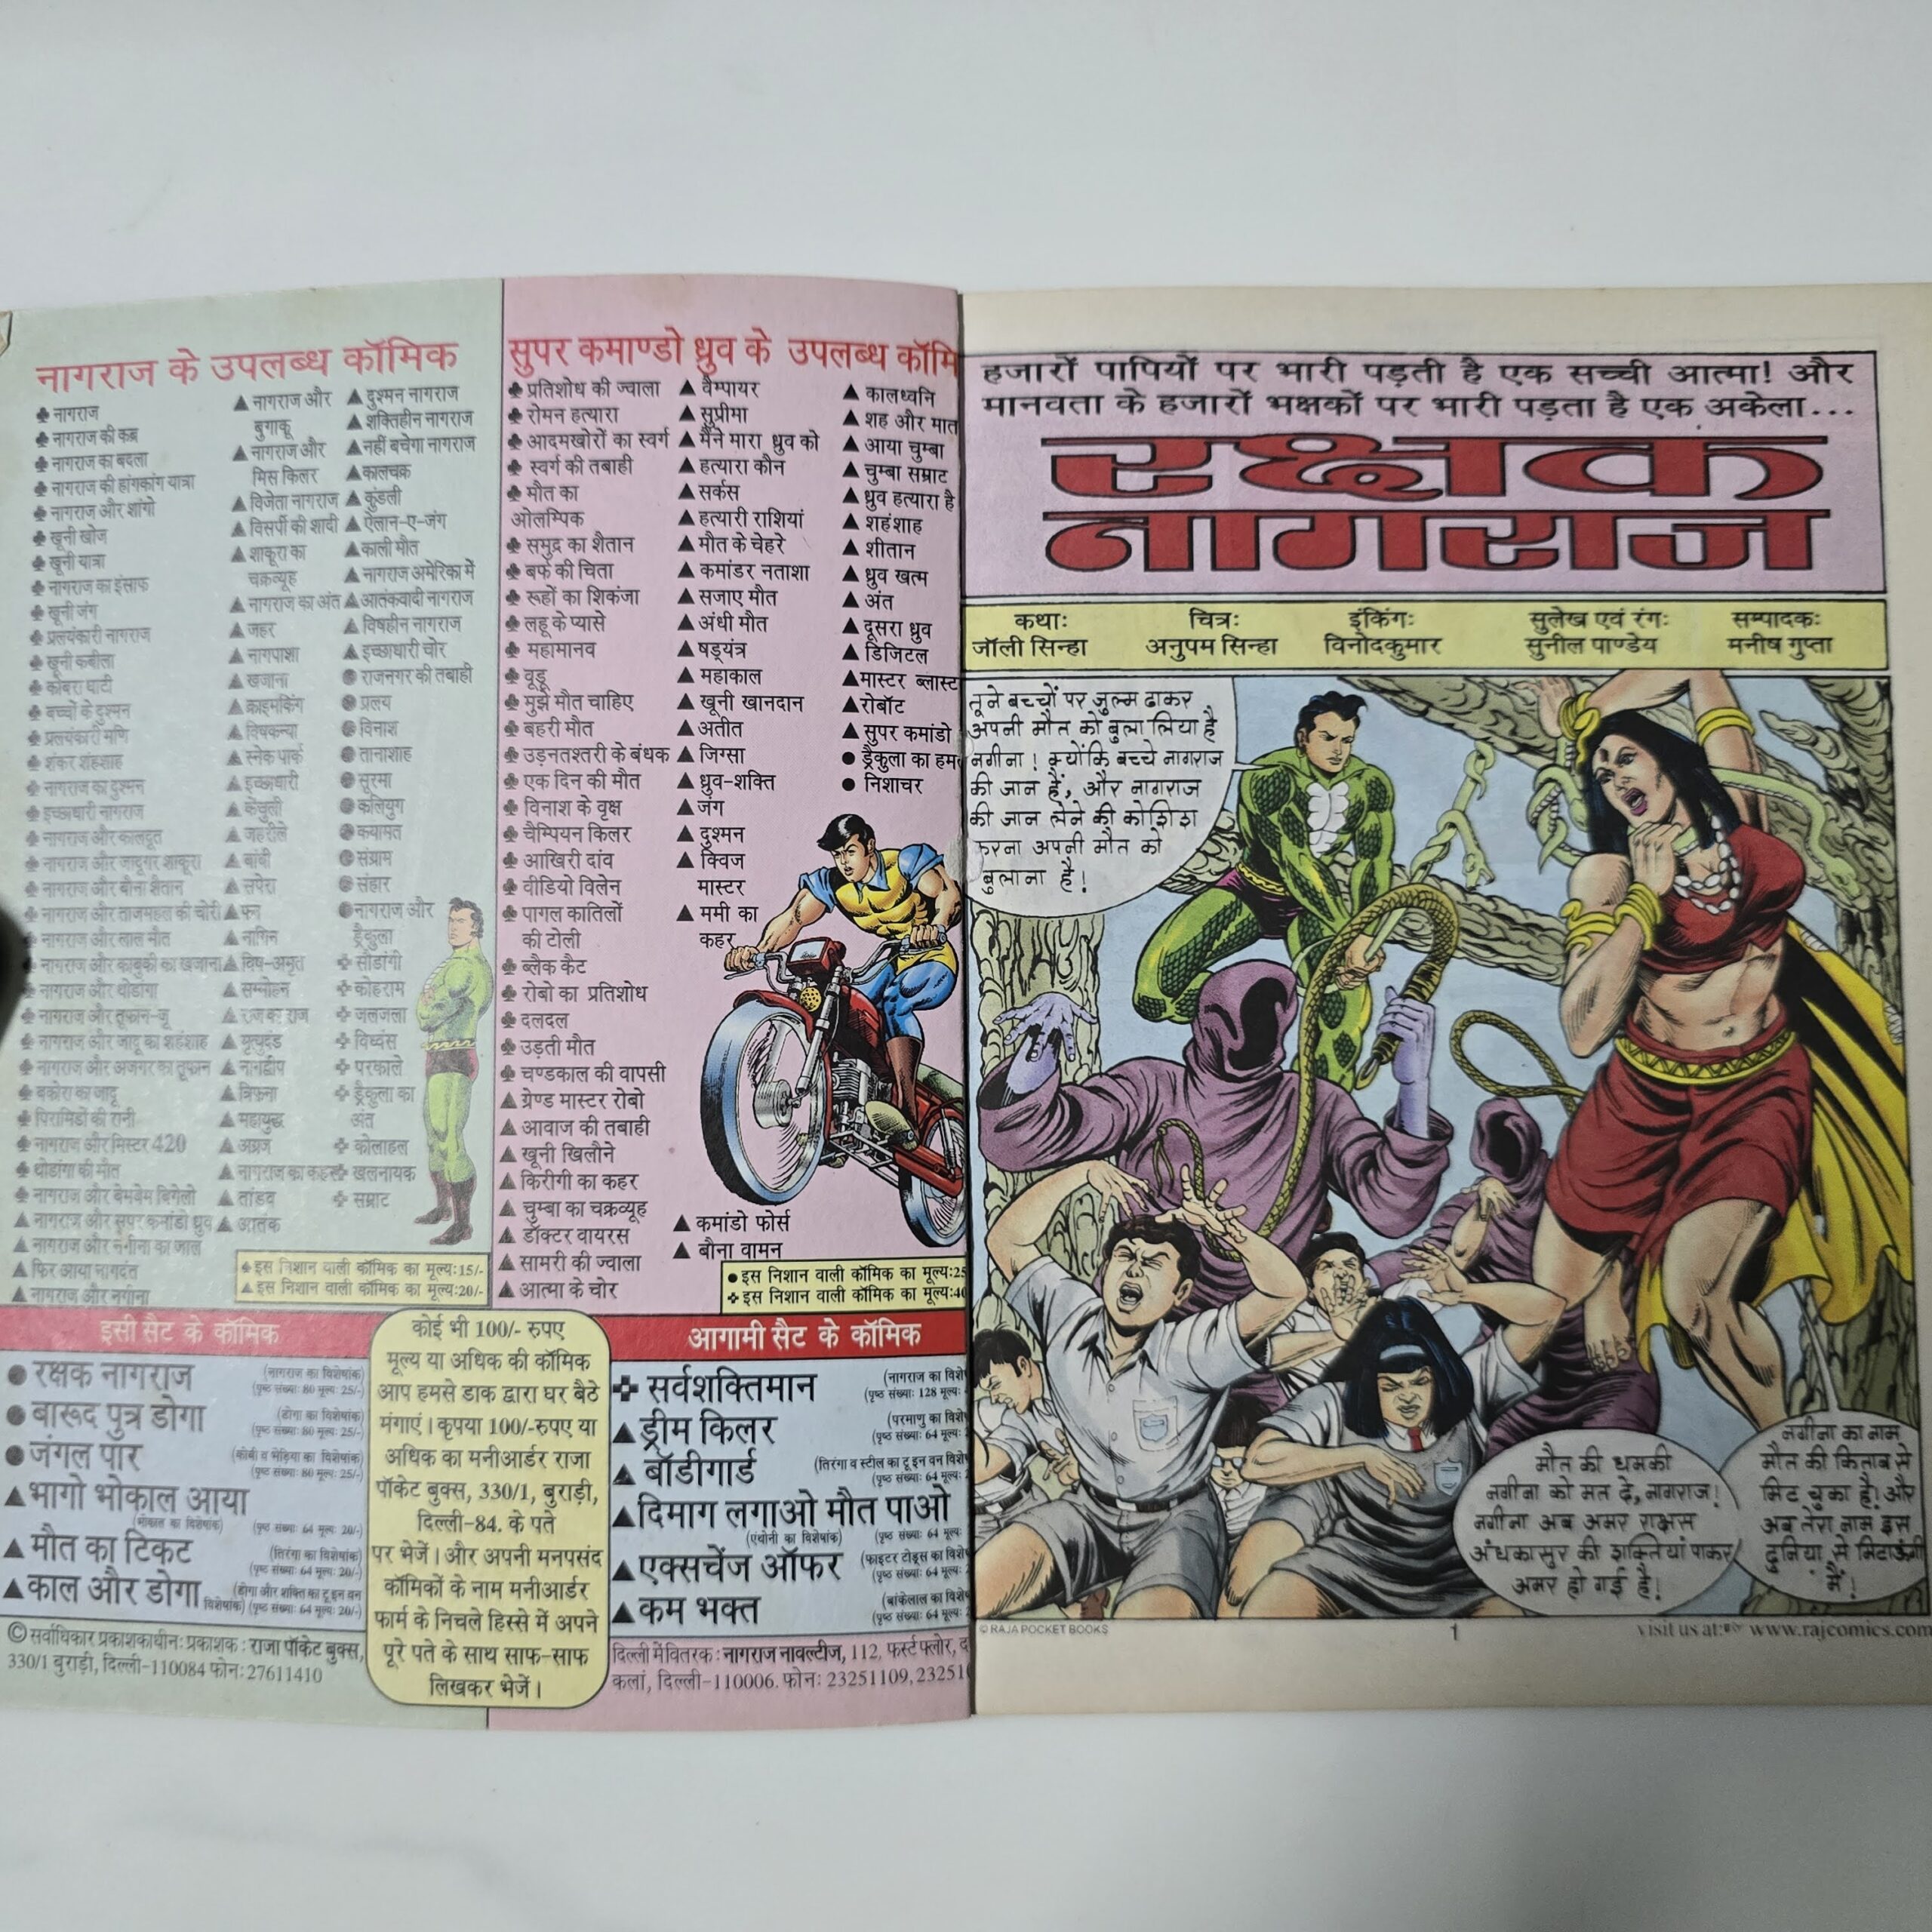 नागराज के उपलब्ध कॉमिक
♣ नागराज
♣ नागराज की कब्र
♣ नागराज का बदला
♣ नागराज की हांगकांग यात्रा
♣ नागराज और शांगो
♣ खूनी खोज
♣ खूनी यात्रा
♣ नागराज का इंसाफ
♣ खूनी जंग
♣ प्रलयंकारी नागराज
♣ खूनी कबीला
♣ कोबरा घाटी
♣ बच्चों के दुश्मन
♣ प्रलयंकारी मणि
♣ शंकर शहंशाह
♣ नागराज का दुश्मन
♣ इच्छाधारी नागराज
♣ नागराज और कालदूत
♣ नागराज और जादूगर शाकूरा
♣ नागराज और बौना शैतान
♣ नागराज और ताजमहल की चोरी
♣ नागराज और लाल मौत
♣ नागराज और काबुकी का खजाना
♣ नागराज और थोडांगा
♣ नागराज और तूफान-जू
♣ नागराज और जादू का शहंशाह
♣ नागराज और अजगर का तूफान
♣ बकोरा का जादू
♣ पिरामिडों की रानी
♣ नागराज और मिस्टर 420
♣ थोडांगा की मौत
♣ नागराज और बेमबेम बिगेलो
▲ नागराज और सुपर कमांडो ध्रुव
▲ नागराज और नगीना का जाल
▲ फिर आया नागदंत
▲ नागराज और नगीना
▲ नागराज और
बुगाकू
▲ नागराज और
मिस किलर
▲ विजेता नागराज
▲ विसर्पी की शादी
▲ शाकूरा का
चक्रव्यूह
▲ नागराज का अंत
▲ जहर
▲ नागपाशा
▲ खजाना
▲ क्राइमकिंग
▲ विषकन्या
▲ स्नेक पार्क
▲ इच्छाधारी
▲ केंचुली
▲ जहरीले
▲ बांबी
▲ सपेरा
▲ फन
▲ नागिन
▲ विष-अमृत
▲ सम्मोहन
▲ राज का राज
▲ मृत्युदंड
▲ नागद्वीप
▲ त्रिफना
▲ महायुद्ध
▲ अग्रज
▲ नागराज का कहर
▲ तांडव
▲ आतंक
▲ दुश्मन नागराज
▲ शक्तिहीन नागराज
▲ नहीं बचेगा नागराज
▲ कालचक्र
▲ कुंडली
▲ ऐलान-ए-जंग
▲ काली मौत
▲ नागराज अमेरिका में
▲ आतंकवादी नागराज
▲ विषहीन नागराज
▲ इच्छाधारी चोर
● राजनगर की तबाही
● प्रलय
● विनाश
● तानाशाह
● सूरमा
● कलियुग
● कयामत
● संग्राम
● संहार
● नागराज और
ड्रैकुला
✤ सौडांगी
✤ कोहराम
✤ जलजला
✤ विध्वंस
✤ परकाले
✤ ड्रैकुला का
अंत
✤ कोलाहल
✤ खलनायक
✤ सम्राट
♣ इस निशान वाली कॉमिक का मूल्य:15/-
▲ इस निशान वाली कॉमिक का मूल्य:20/-
सुपर कमाण्डो ध्रुव के उपलब्ध कॉमि
♣ प्रतिशोध की ज्वाला
♣ रोमन हत्यारा
♣ आदमखोरों का स्वर्ग
♣ स्वर्ग की तबाही
♣ मौत का
ओलम्पिक
♣ समुद्र का शैतान
♣ बर्फ की चिता
♣ रूहों का शिकंजा
♣ लहू के प्यासे
♣ महामानव
♣ वूडू
♣ मुझे मौत चाहिए
♣ बहरी मौत
♣ उड़नतश्तरी के बंधक
♣ एक दिन की मौत
♣ विनाश के वृक्ष
♣ चैम्पियन किलर
♣ आखिरी दांव
♣ वीडियो विलेन
♣ पागल कातिलों
की टोली
♣ ब्लैक कैट
♣ रोबो का प्रतिशोध
♣ दलदल
♣ उड़ती मौत
♣ चण्डकाल की वापसी
▲ ग्रेण्ड मास्टर रोबो
▲ आवाज की तबाही
▲ खूनी खिलौने
▲ किरीगी का कहर
▲ चुम्बा का चक्रव्यूह
▲ डॉक्टर वायरस
▲ सामरी की ज्वाला
▲ आत्मा के चोर
▲ वैम्पायर
▲ सुप्रीमा
▲ मैंने मारा ध्रुव को
▲ हत्यारा कौन
▲ सर्कस
▲ हत्यारी राशियां
▲ मौत के चेहरे
▲ कमांडर नताशा
▲ सजाए मौत
▲ अंधी मौत
▲ षड्यंत्र
▲ महाकाल
▲ खूनी खानदान
▲ अतीत
▲ जिग्सा
▲ ध्रुव-शक्ति
▲ जंग
▲ दुश्मन
▲ क्विज
मास्टर
▲ ममी का
कहर
▲ कमांडो फोर्स
▲ बौना वामन
▲ कालध्वनि
▲ शह और मात
▲ आया चुम्बा
▲ चुम्बा सम्राट
▲ ध्रुव हत्यारा है
▲ शहंशाह
▲ शीतान
▲ ध्रुव खत्म
▲ अंत
▲ दूसरा ध्रुव
▲ डिजिटल
▲ मास्टर ब्लास्ट
▲ रोबॉट
▲ सुपर कमांडो
● ड्रैकुला का हम
● निशाचर
● इस निशान वाली कॉमिक का मूल्य:25
✤ इस निशान वाली कॉमिक का मूल्य:40
इसी सैट के कॉमिक
● रक्षक नागराज (नागराज का विशेषांक)
(पृष्ठ संख्या: 80 मूल्य: 25/-)
● बारूद पुत्र डोगा (डोगा का विशेषांक)
(पृष्ठ संख्या: 80 मूल्य: 25/-)
● जंगल पार (कोबी व भेड़िया का विशेषांक)
(पृष्ठ संख्या: 80 मूल्य: 25/-)
▲ भागो भोकाल आया
(भोकाल का विशेषांक) (पृष्ठ संख्या: 64 मूल्य: 20/-)
▲ मौत का टिकट (तिरंगा का विशेषांक)
(पृष्ठ संख्या: 64 मूल्य: 20/-)
▲ काल और डोगा (डोगा और शक्ति का टू इन वन
विशेषांक) (पृष्ठ संख्या: 64 मूल्य: 20/-)
कोई भी 100/- रुपए
मूल्य या अधिक की कॉमिक
आप हमसे डाक द्वारा घर बैठे
मंगाएं। कृपया 100/-रुपए या
अधिक का मनीआर्डर राजा
पॉकेट बुक्स, 330/1, बुराड़ी,
दिल्ली-84. के पते
पर भेजें। और अपनी मनपसंद
कॉमिकों के नाम मनीआर्डर
फार्म के निचले हिस्से में अपने
पूरे पते के साथ साफ-साफ
लिखकर भेजें।
आगामी सैट के कॉमिक
✤ सर्वशक्तिमान (नागराज का विशे
(पृष्ठ संख्या: 128 मूल्य:
▲ ड्रीम किलर (परमाणु का विशे
(पृष्ठ संख्या: 64 मूल्य:
▲ बॉडीगार्ड (तिरंगा व स्टील का टू इन वन विशे
(पृष्ठ संख्या: 64 मूल्य:
▲ दिमाग लगाओ मौत पाओ
(एंथोनी का विशेषांक) (पृष्ठ संख्या: 64 मूल्य:
▲ एक्सचेंज ऑफर (फाइटर टोड्स का विशे
(पृष्ठ संख्या: 64 मूल्य:
▲ कम भक्त (बांकेलाल का विशे
(पृष्ठ संख्या: 64 मूल्य:
© सर्वाधिकार प्रकाशकाधीन: प्रकाशक : राजा पॉकेट बुक्स,
330/1 बुराड़ी, दिल्ली-110084 फोन:27611410
दिल्ली में वितरक : नागराज नावल्टीज, 112, फर्स्ट फ्लोर, द
कलां, दिल्ली-110006. फोन: 23251109, 23251
हजारों पापियों पर भारी पड़ती है एक सच्ची आत्मा! और
मानवता के हजारों भक्षकों पर भारी पड़ता है एक अकेला...
रक्षक
नागराज
कथा: चित्र: इंकिंग: सुलेख एवं रंग: सम्पादक:
जॉली सिन्हा अनुपम सिन्हा विनोदकुमार सुनील पाण्डेय मनीष गुप्ता
तूने बच्चों पर जुल्म ढाकर
अपनी मौत को बुला लिया है
नगीना! क्योंकि बच्चे नागराज
की जान हैं, और नागराज
की जान लेने की कोशिश
करना अपनी मौत को
बुलाना है!
मौत की धमकी
नगीना को मत दे, नागराज!
नगीना अब अमर राक्षस
अंधकासुर की शक्तियां पाकर
अमर हो गई है!
नगीना का नाम
मौत की किताब से
मिट चुका है! और
अब तेरा नाम इस
दुनिया से मिटाऊंगी
मैं!
© RAJA POCKET BOOKS
1
visit us at: www.rajcomics.com